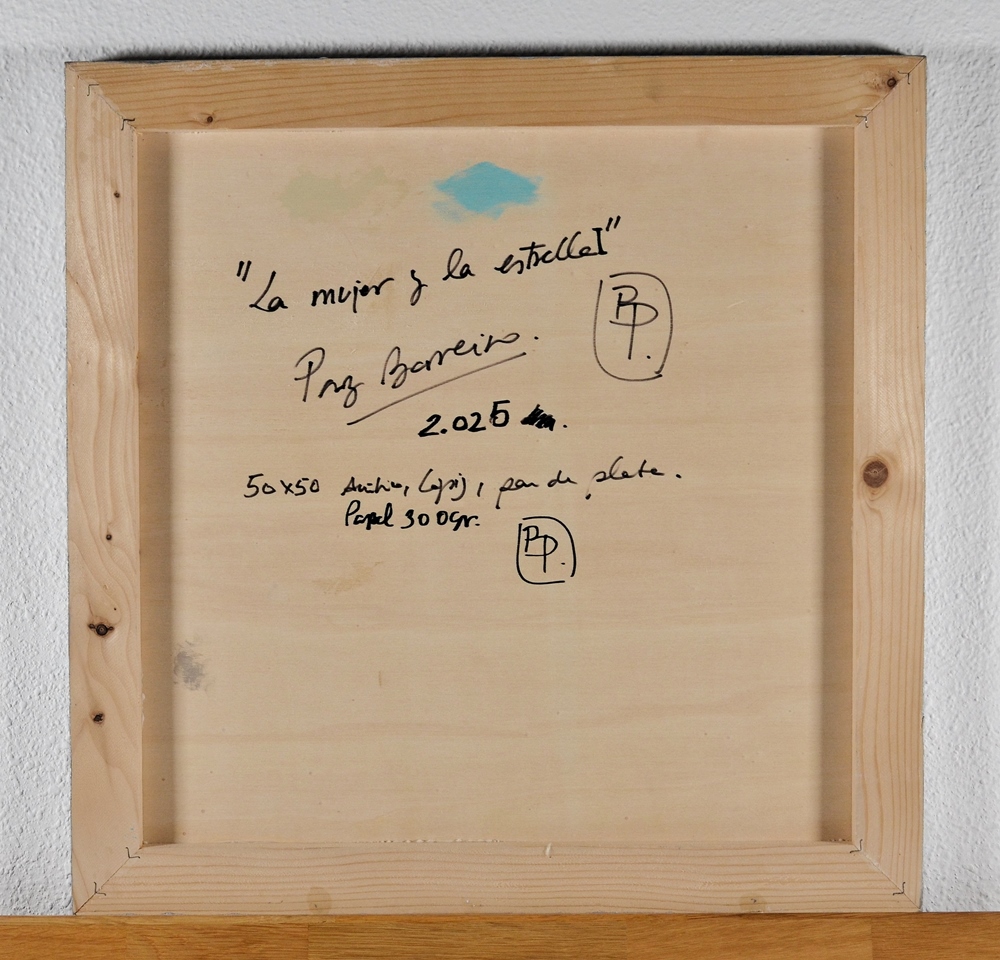 "La mujer y la estrella I"
BP.
Paz Barreiro.
2.025
50x50 Acrílico, Lápiz, pan de plata.
Papel 300gr.
BP.